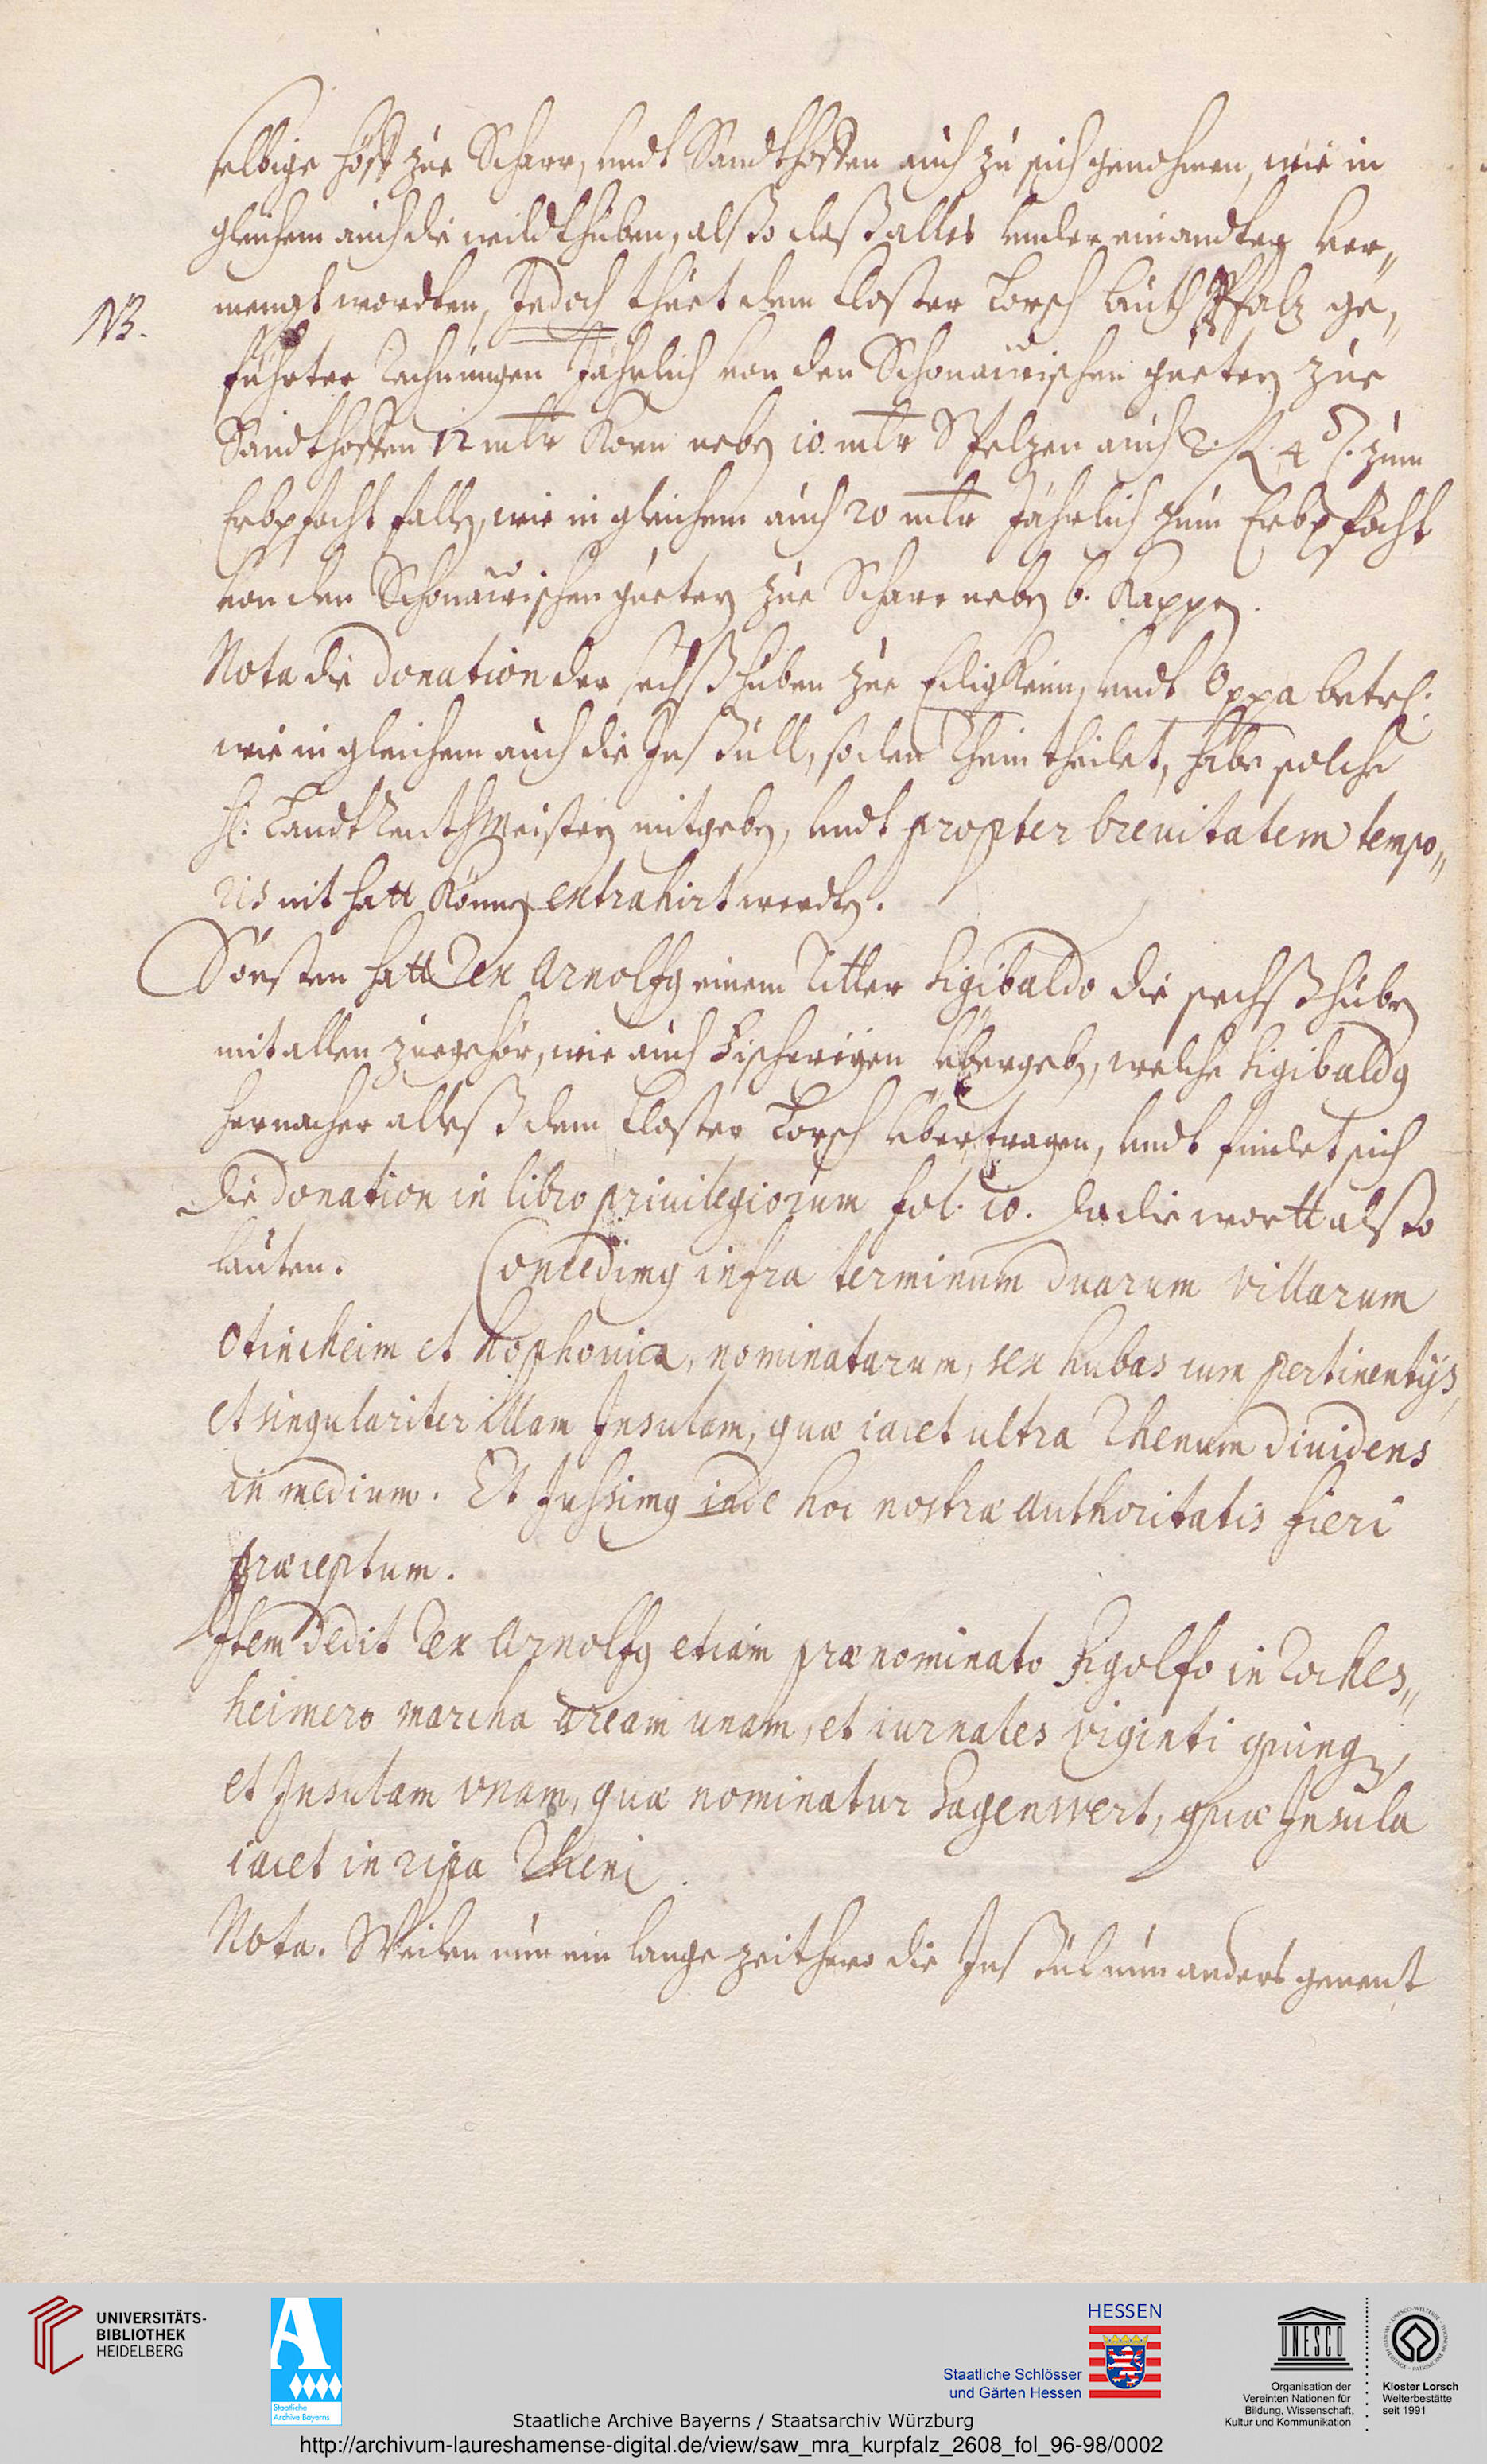 selbige höff zue Scharr, undt Sandthoffen auch zu sich genohmen, wie in
gleichem auch die wildthuben, also daß alles under einandter ver„
mengt wordten, Jedoch thuet dem Closter Lorsch lauth Pfalz ge„
NB.
führter Rechnungen Jährlich von den Schonawischen güetern zue
Sandthoffen 12 mltr Korn neben 10. mltr Speltzen auch 2. fl. 4 zum
Erbpfacht fallen, wie in gleichem auch 20 mltr Jährlich zum Erbpfacht
von den Schonawischen güetern zue Scharr neben 6. Kappen.
Nota die donation der sechß huben zue Ediglheim, undt Oppa betrf:
wie in gleichem auch die Insull, so den Rhein theilet, habe solche
H: Landtrentmeistern mitgeben, undt propter breuitatem tempo„
ris nit hatt können extrahirt werden.
Sonsten hatt Rex Arnolfus einem Ritter Sigibaldo die sechß huben
mit allen zuegehör, wie auch Fischereyen übergeben, welche Sigibaldus
hernacher alleß dem Closter Lorsch übertragen, undt findet sich
die donation in libro priuilegiorum fol. 10. da die wortt also
lauten. Concedimus infra terminum duarum villarum
Otincheim et Hophouia, nominatarum, sex hubas cum pertinentijs,
et singulariter illam Insulam, quæ iacet ultra Rhenum diuidens
in medium. Et Jussimus inde hoc nostræ authoritatis fieri
præceptum.
Item dedit Rex Arnolfus etiam prænominato Sigolfo in Loches„
heimero marcha aream unam, et iurnales viginti quinque,
et Insulam vnam, quæ nominatur Sagenwert, quæ Insula
iacet in ripa Rheni.
Nota. Weilen nun ein lange zeithero die Insul nun anderst genent
UNIVERSITÄTS-
BIBLIOTHEK
HEIDELBERG
Staatliche
Archive Bayerns
HESSEN
Staatliche Schlösser
und Gärten Hessen
UNESCO
Organisation der
Vereinten Nationen für
Bildung, Wissenschaft,
Kultur und Kommunikation
Kloster Lorsch
Welterbestätte
seit 1991
Staatliche Archive Bayerns / Staatsarchiv Würzburg
http://archivum-laureshamense-digital.de/view/saw_mra_kurpfalz_2608_fol_96-98/0002